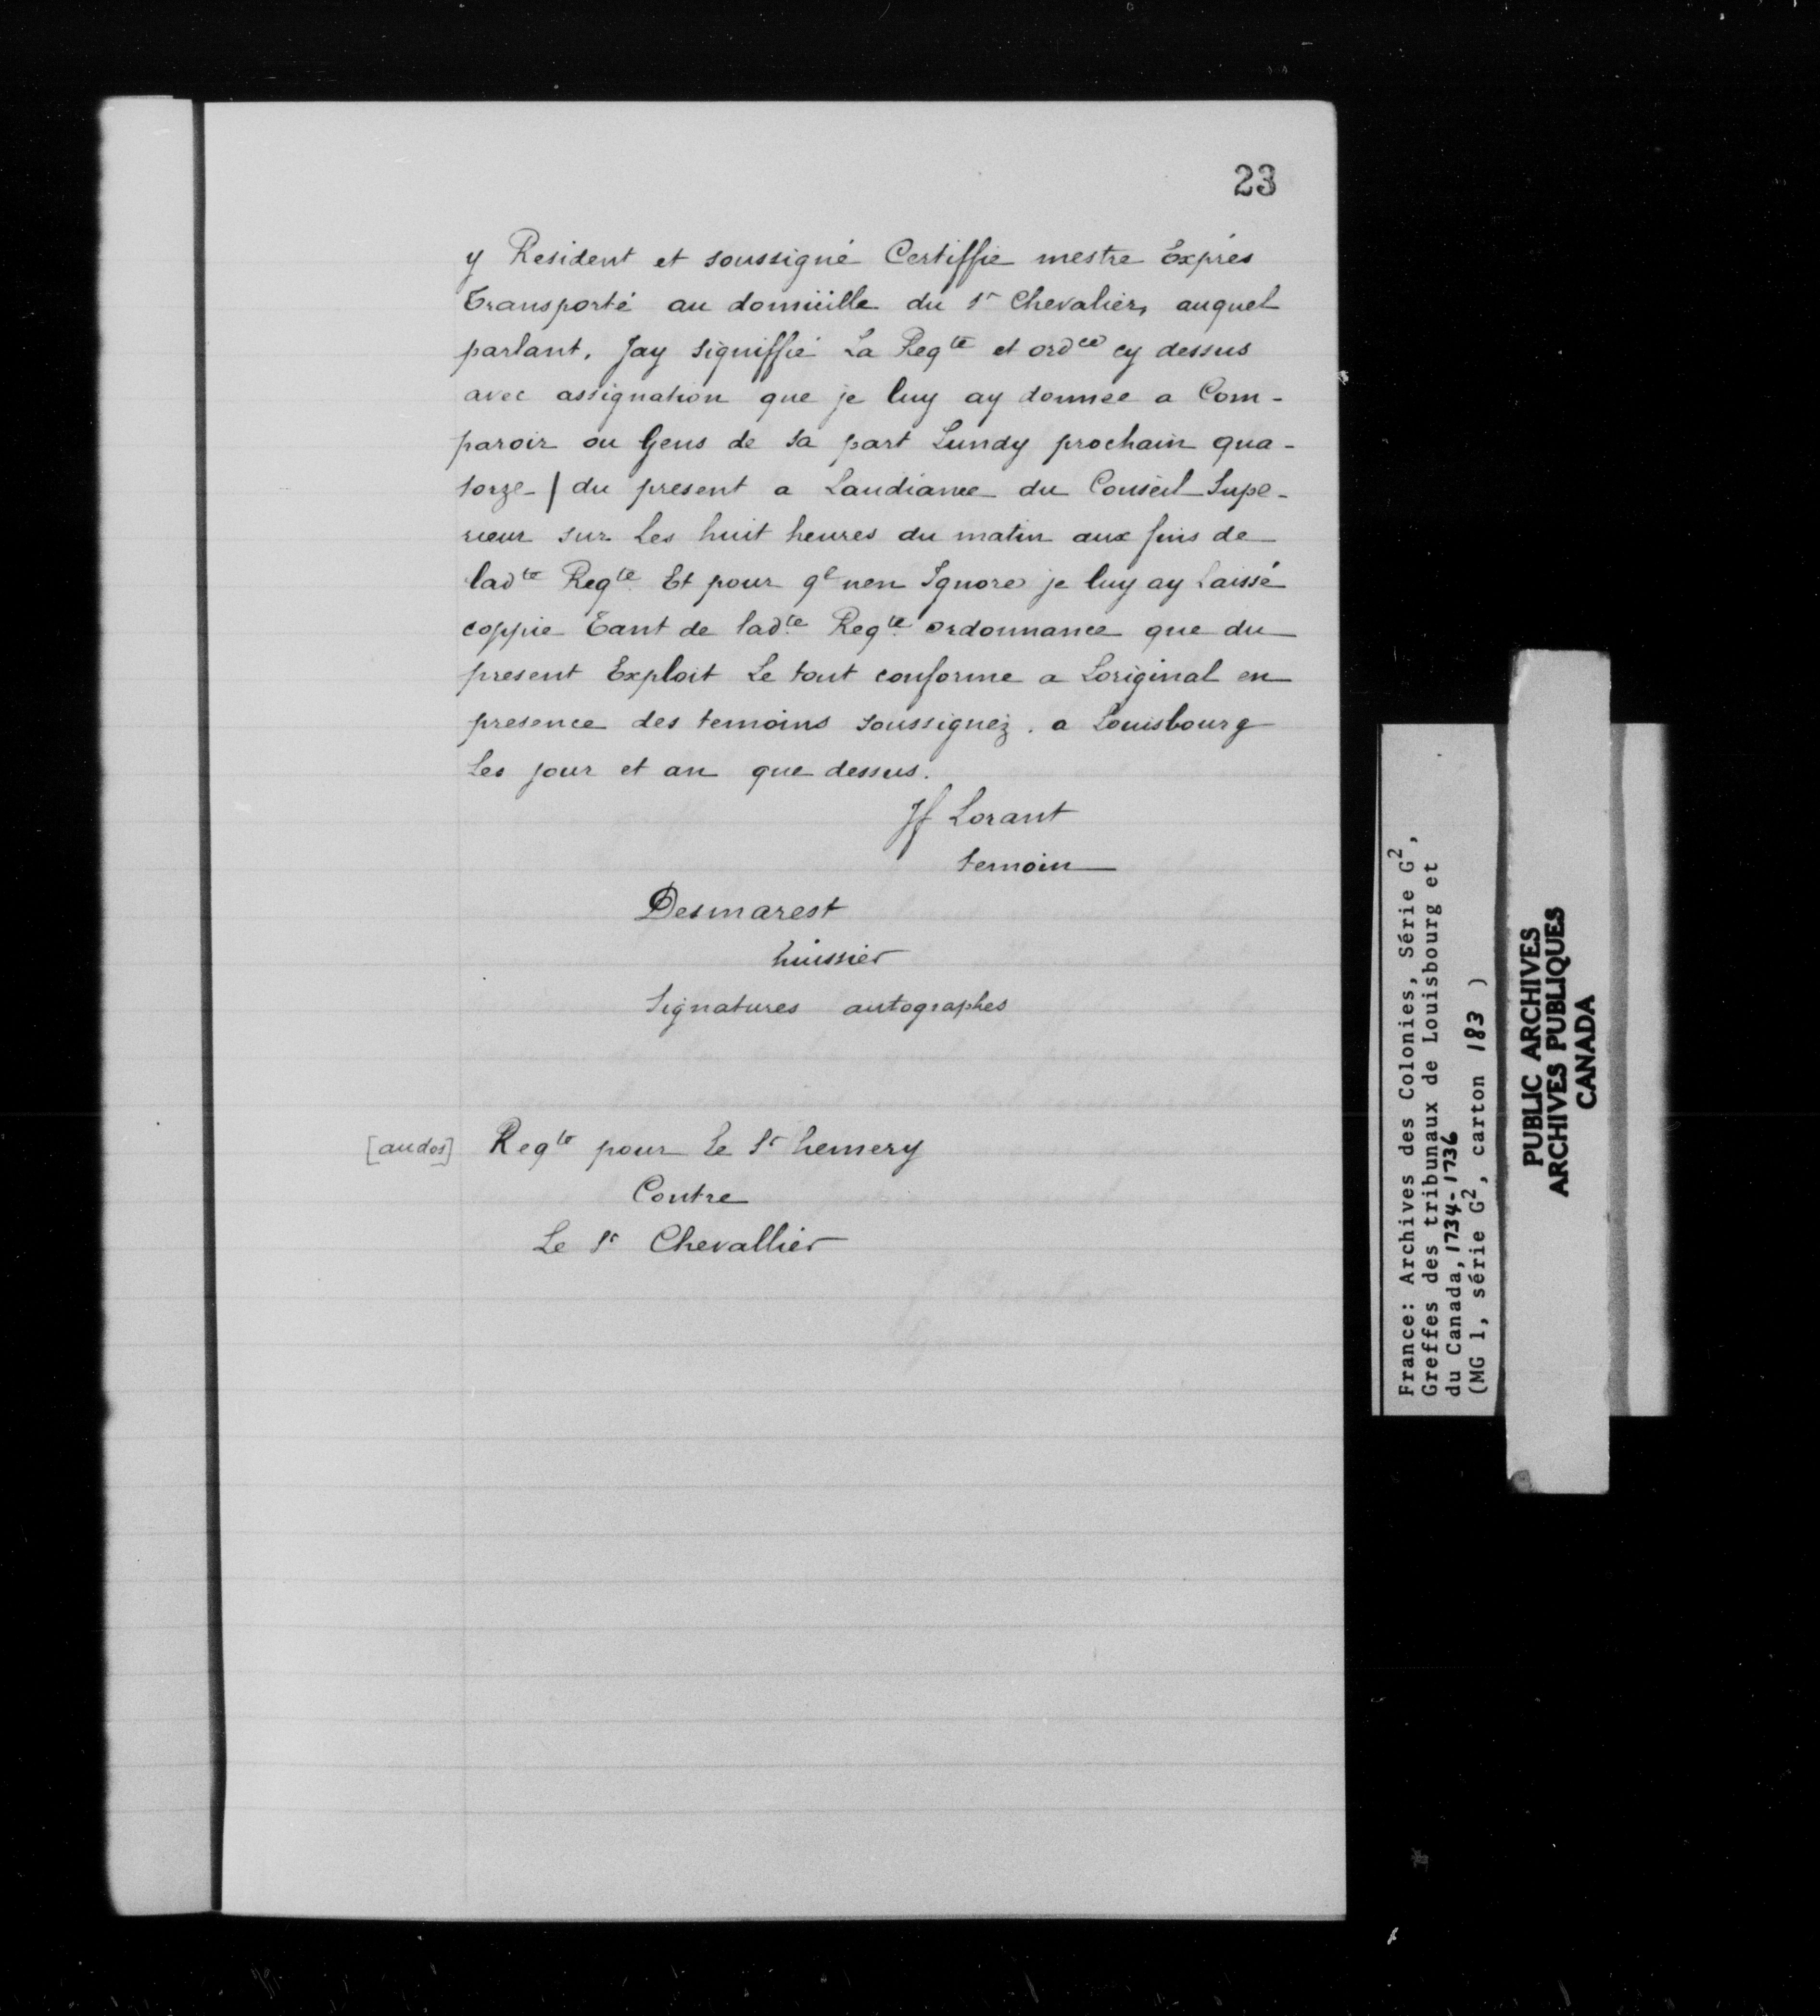 23
y Resident et soussigné Certiffie mestre Exprés
Transporté au domiülle du Sr Chevalier, auquel
parlant. Jay signiffié La Reqte et ordce cy dessus
avec assignation que je luy ay donnee a Com-
paroir ou Gens de sa part Lundy prochain qua-
torze / du present a Laudiance du Conseil Supe-
rieur sur Les huit heures du matin aux fins de
ladte Reqte Et pour ql nen Ignore je luy ay Laissé
coppie Tant de ladte Reqte Ordonnance que du
present Exploit Le tout conforme a Loriginal en
presence des temoins soussignez. a Louisbourg
Les jour et an que dessus.
Jf Lorant
temoin
Desmarest
huissier
Signatures autographes
[au dos] Reqte pour Le Sr hemery
Contre
Le Sr Chevallier
France: Archives des Colonies, Série G2,
Greffes des tribunaux de Louisbourg et
du Canada, 1734-1736
(MG 1, série G2, carton 183 )
PUBLIC ARCHIVES
ARCHIVES PUBLIQUES
CANADA